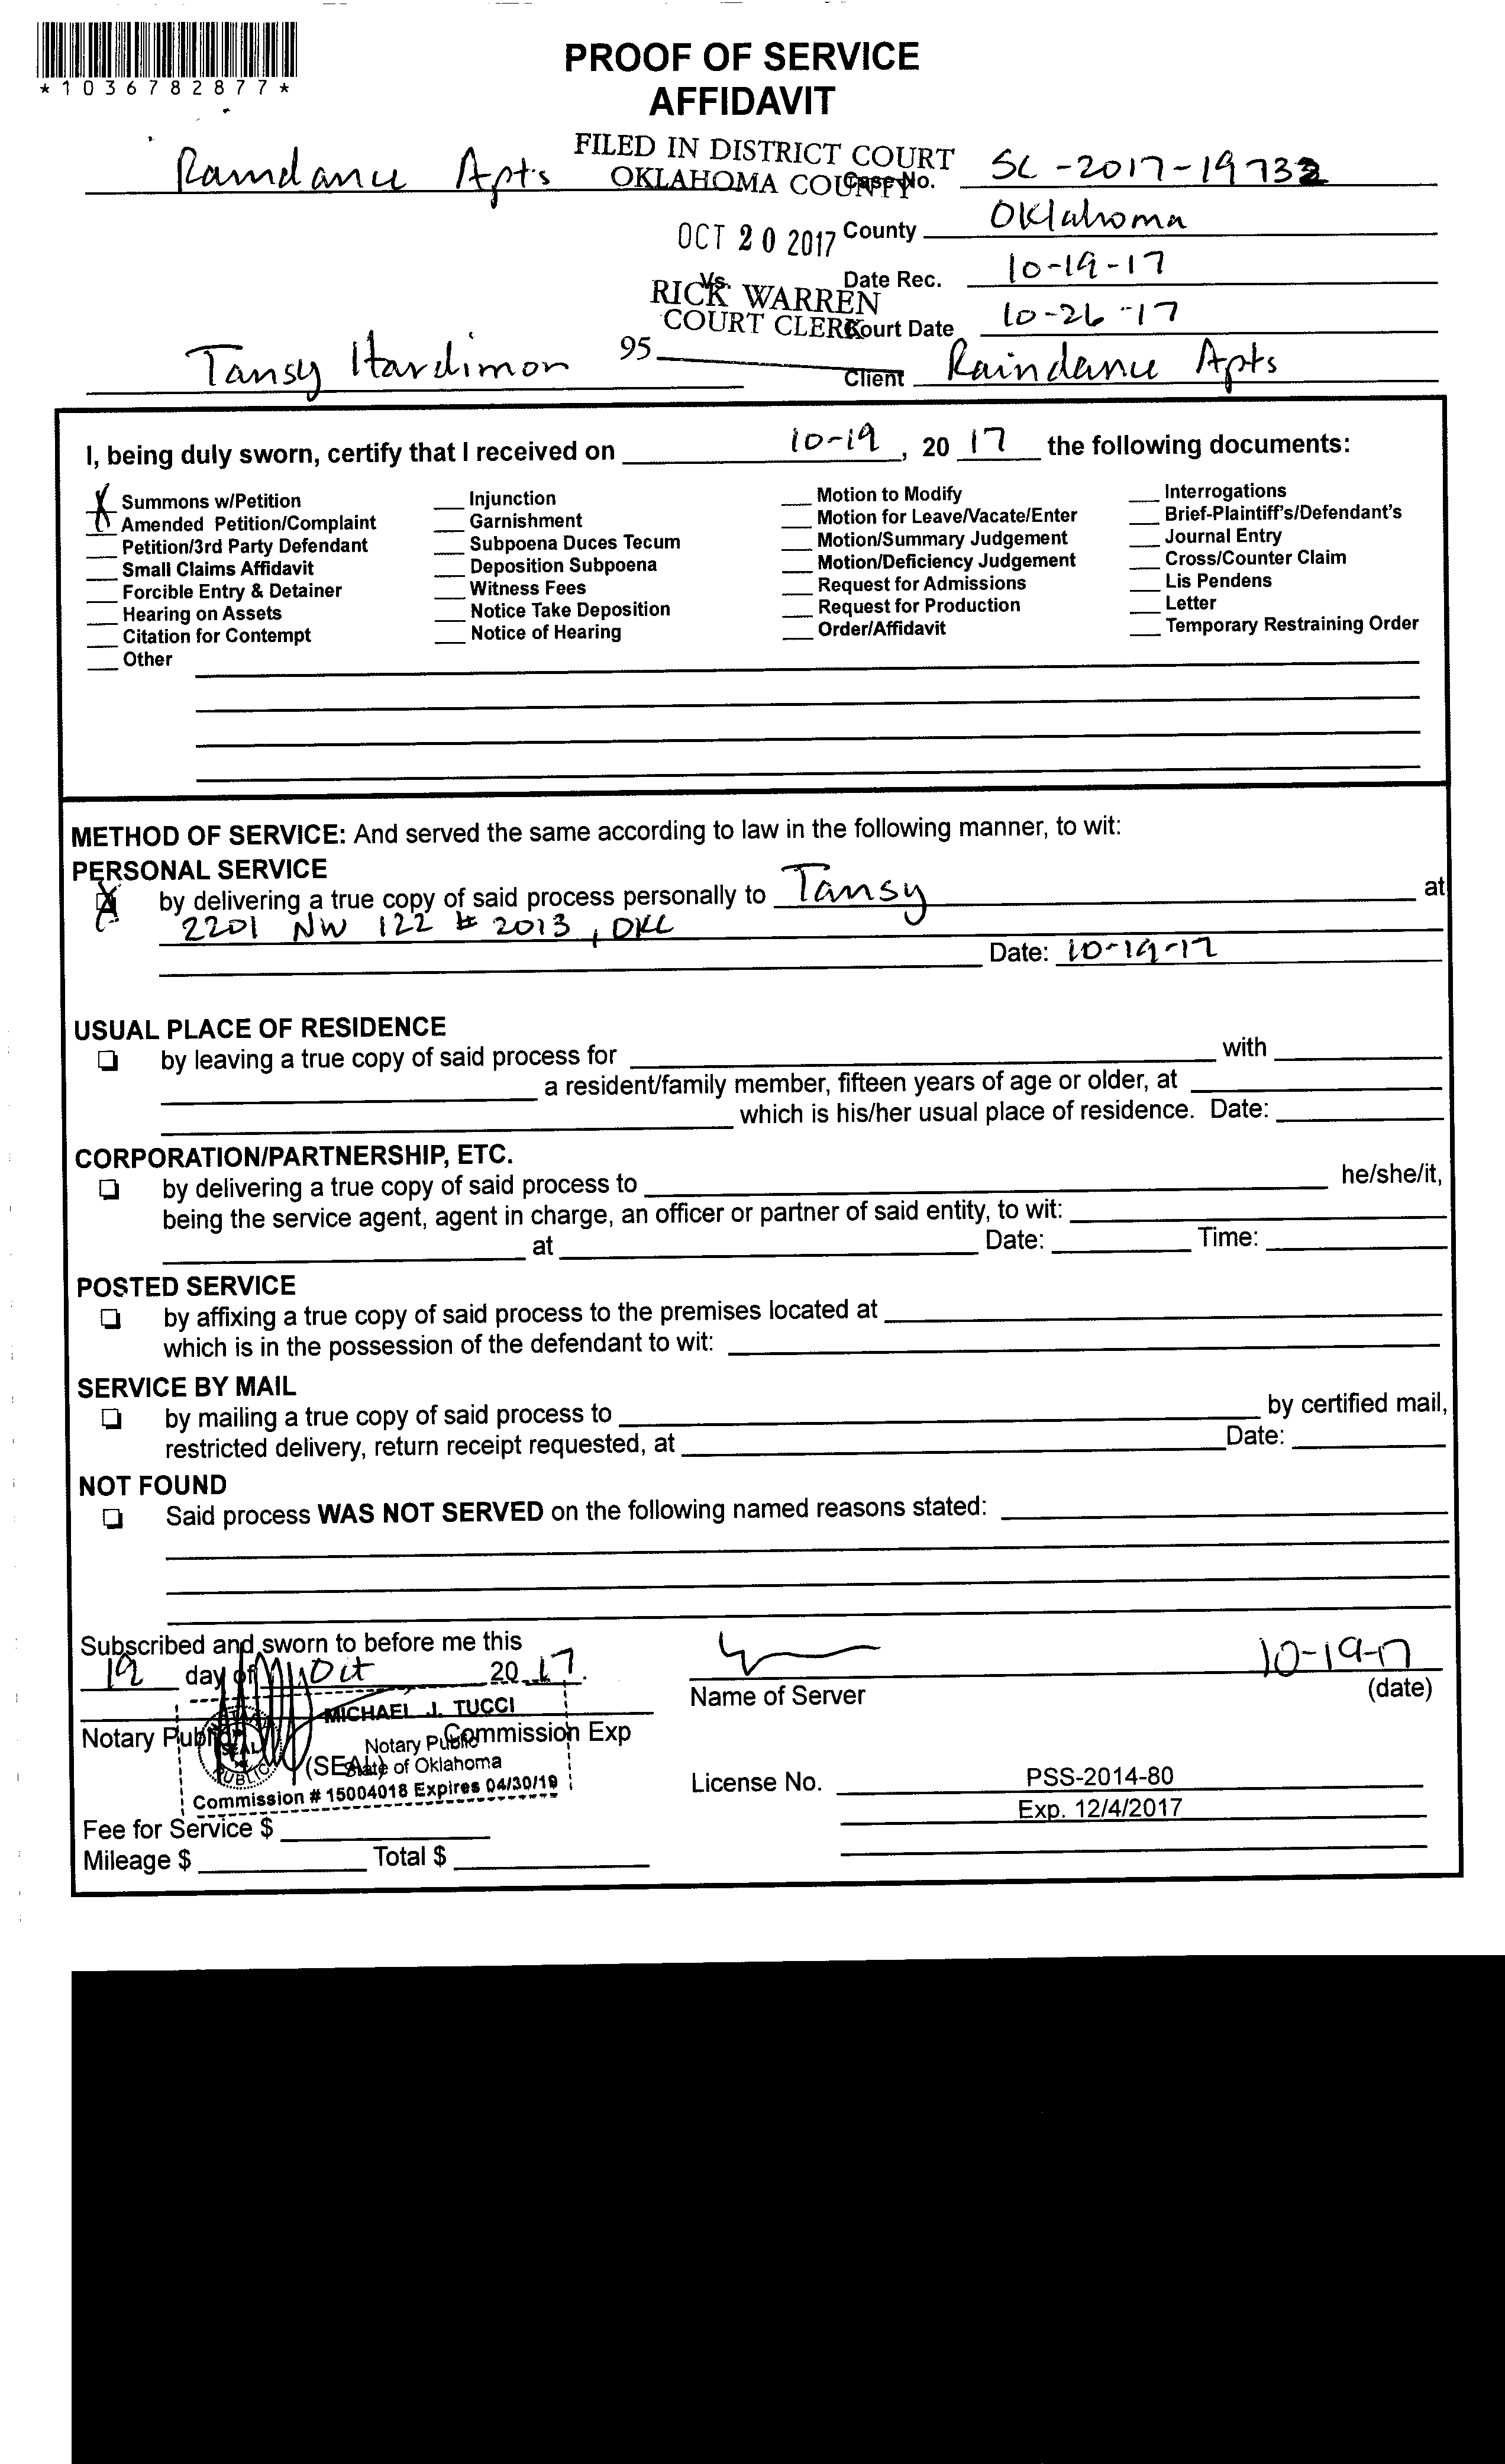 *1036782877*
PROOF OF SERVICE
AFFIDAVIT
FILED IN DISTRICT COURT
OKLAHOMA COUNTY
Raindance Apts
Case No. SC-2017-19732
OCT 20 2017
County Oklahoma
Vs.
Date Rec. 10-19-17
RICK WARREN
COURT CLERK
Court Date 10-26-17
95
Tansy Hardimon
Client Raindance Apts
I, being duly sworn, certify that I received on 10-19, 20 17 the following documents:
X Summons w/Petition
Amended Petition/Complaint
Petition/3rd Party Defendant
Small Claims Affidavit
Forcible Entry & Detainer
Hearing on Assets
Citation for Contempt
Other
Injunction
Garnishment
Subpoena Duces Tecum
Deposition Subpoena
Witness Fees
Notice Take Deposition
Notice of Hearing
Motion to Modify
Motion for Leave/Vacate/Enter
Motion/Summary Judgement
Motion/Deficiency Judgement
Request for Admissions
Request for Production
Order/Affidavit
Interrogations
Brief-Plaintiff's/Defendant's
Journal Entry
Cross/Counter Claim
Lis Pendens
Letter
Temporary Restraining Order
METHOD OF SERVICE: And served the same according to law in the following manner, to wit:
PERSONAL SERVICE
X by delivering a true copy of said process personally to Tansy at
2201 NW 122 # 2013, OKC
Date: 10-19-17
USUAL PLACE OF RESIDENCE
by leaving a true copy of said process for with
a resident/family member, fifteen years of age or older, at
which is his/her usual place of residence. Date:
CORPORATION/PARTNERSHIP, ETC.
by delivering a true copy of said process to he/she/it,
being the service agent, agent in charge, an officer or partner of said entity, to wit:
at Date: Time:
POSTED SERVICE
by affixing a true copy of said process to the premises located at
which is in the possession of the defendant to wit:
SERVICE BY MAIL
by mailing a true copy of said process to by certified mail,
restricted delivery, return receipt requested, at Date:
NOT FOUND
Said process WAS NOT SERVED on the following named reasons stated:
Subscribed and sworn to before me this
19 day of Oct 20 17.
10-19-17
Name of Server (date)
MICHAEL J. TUCCI
Notary Public Commission Exp
Notary Public
(SEAL)
State of Oklahoma
SEAL
PUBLIC
Commission # 15004018 Expires 04/30/19
License No. PSS-2014-80
Exp. 12/4/2017
Fee for Service $
Mileage $ Total $